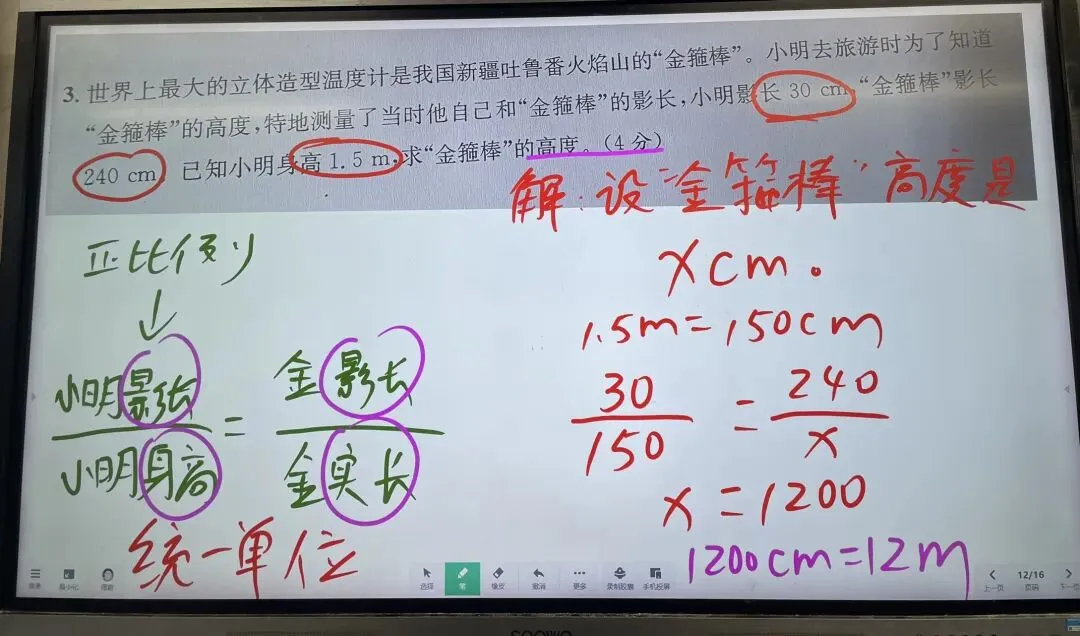 3. 世界上最大的立体造型温度计是我国新疆吐鲁番火焰山的“金箍棒”。小明去旅游时为了知道
“金箍棒”的高度,特地测量了当时他自己和“金箍棒”的影长,小明影长 30 cm,“金箍棒”影长
240 cm, 已知小明身高 1.5 m,求“金箍棒”的高度。(4 分)
解:设“金箍棒”高度是
x cm。
正比例
↓
小明影长 = 金影长
小明身高 金实长
统一单位
1.5m=150cm
30 = 240
150 x
x=1200
1200cm=12m
最小化
选择
笔
橡皮
撤消
更多
录制胶囊
手机投屏
上一页
12/16
页码
下一页